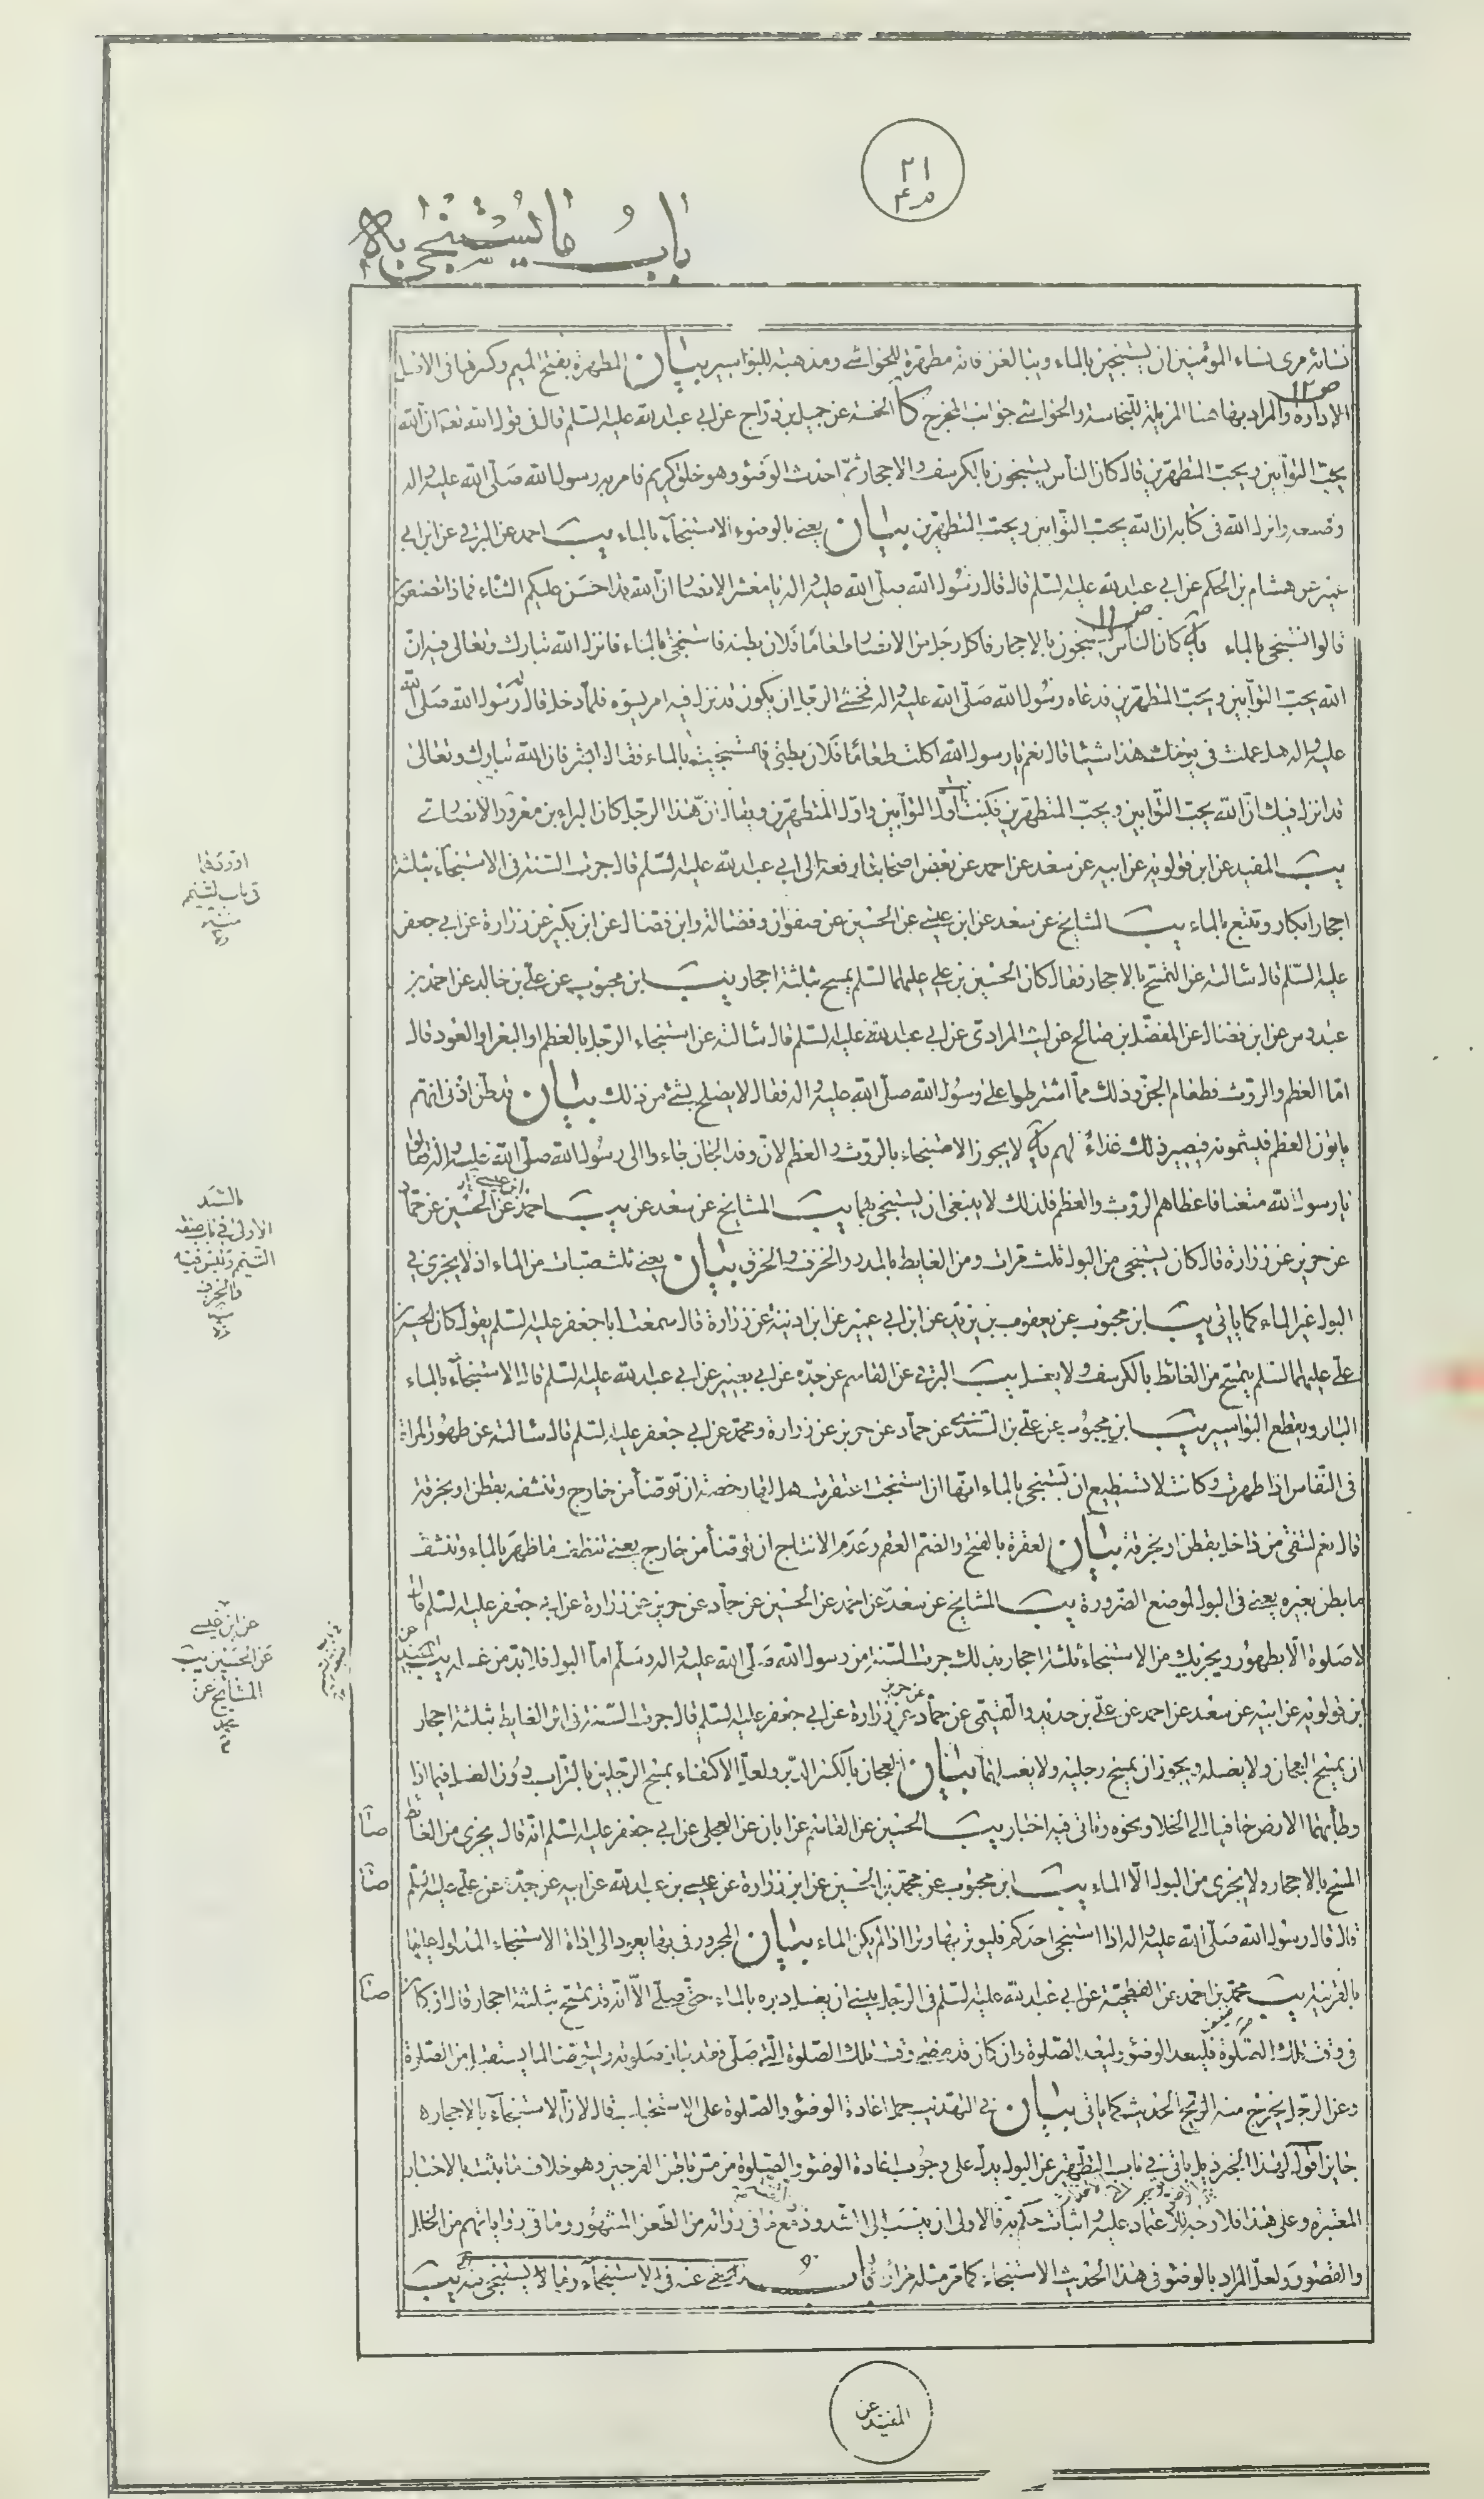 ٢١
باب ما يستنجى به
نسائه مرى نساء المؤمنين ان يستنجين بالماء ويبالغن فانه مطهرة للحواشى ومذهبة للبواسير بيان المطهرة بفتح الميم وكسرها فى الاصل
الاداوة والمراد بها هنا المزيلة للنجاسة والحواشى جوانب المخرج كا الخمسة عن جميل بن دراج عن ابى عبد الله عليه السلم قال فى قول الله تعه ان الله
يحب التوابين ويحب المتطهرين قال كان الناس يستنجون بالكرسف والاحجار ثم احدث الوضؤ وهو خلق كريم فامر به رسول الله صلى الله عليه واله
وصنعه وانزل الله فى كتابه ان الله يحب التوابين ويحب المتطهرين بيان يعنى بالوضوء الاستنجاء بالماء يب احمد عن البرقى عن ابن ابى
عمير عن هشام بن الحكم عن ابى عبد الله عليه السلم قال قال رسول الله صلى الله عليه واله يا معشر الانصار ان الله قد احسن عليكم الثناء فماذا تصنعون
قالوا نستنجى بالماء يه كان الناس يستنجون بالاحجار فاكل رجل من الانصار طعاما فلان بطنه فاستنجى بالماء فانزل الله تبارك وتعالى فيه ان
الله يحب التوابين ويحب المتطهرين فدعاه رسول الله صلى الله عليه واله فخشى الرجل ان يكون قد نزل فيه امر يسوءه فلما دخل قال له رسول الله صلى الله
عليه واله هل عملت فى يومك هذا شيئا قال نعم يا رسول الله اكلت طعاما فلان بطنى فاستنجيت بالماء فقال ابشر فان الله تبارك وتعالى
قد انزل فيك ان الله يحب التوابين ويحب المتطهرين فكنت اول التوابين واول المتطهرين ويقال ان هذا الرجل كان البراء بن معرور الانصارى
يب المفيد عن ابن قولويه عن ابيه عن سعد عن احمد عن بعض اصحابنا رفعه الى ابى عبد الله عليه السلم قال جرت السنة فى الاستنجاء بثلثة
احجار ابكار وتتبع بالماء يب المشايخ عن سعد عن ابن عيسى عن الحسين عن صفوان وفضالة وابن فضال عن ابن بكير عن زرارة عن ابى جعفر
عليه السلم قال سالته عن التمسح بالاحجار فقال كان الحسين بن على عليهما السلم يمسح بثلثة احجار يب ابن محبوب عن على بن خالد عن احمد بن
عبدوس عن ابن فضال عن المفضل بن صالح عن ليث المرادى عن ابى عبد الله عليه السلم قال سالته عن استنجاء الرجل بالعظم او البعر او العود قال
اما العظم والروث فطعام الجن وذلك مما اشترطوا على رسول الله صلى الله عليه واله فقال لا يصلح بشئ من ذلك بيان
ياتون العظم فيشمونه فيصير ذلك غذاء لهم يه لا يجوز الاستنجاء بالروث والعظم لان وفد الجان جاءوا الى رسول الله صلى الله عليه واله فقالوا
يا رسول الله متعنا فاعطاهم الروث والعظم فلذلك لا ينبغى ان يستنجى بهما يب المشايخ عن سعد عن يب احمد عن الحسين عن حماد
عن حريز عن زرارة قال كان يستنجى من البول ثلث مرات ومن الغايط بالمدر والخزف والخرق بيان يعنى ثلث صبات من الماء اذ لا يجزى فى
البول غير الماء كما ياتى يب ابن محبوب عن يعقوب بن يزيد عن ابن ابى عمير عن ابن اذينة عن زرارة قال سمعت ابا جعفر عليه السلم يقول كان الحسين بن
على عليهما السلم يتمسح من الغائط بالكرسف ولا يغسل يب البرقى عن القاسم عن جده عن ابى بصير عن ابى عبد الله عليه السلم قال الاستنجاء بالماء
البارد يقطع البواسير يب ابن محبوب عن على بن السندى عن حماد عن حريز عن زرارة ومحمد عن ابى جعفر عليه السلم قال سالته عن طهور المراة
فى النفاس اذا طهرت وكانت لا تستطيع ان تستنجى بالماء انها ان استنجت اعتقرت هل لها رخصة ان توضأ من خارج وتنشفه بقطن او بخرقة
قال نعم لتنقى من داخل بقطن او بخرقة بيان العقرة بالفتح والضم العقم وعدم الانتاج ان توضأ من خارج يعنى تنظف ما ظهر بالماء وتنشف
ما بطن بغيره يعنى فى البول لموضع الضرورة يب المشايخ عن سعد عن احمد عن الحسين عن حماد عن حريز عن زرارة عن ابى جعفر عليه السلم قال
لا صلوة الا بطهور ويجزيك من الاستنجاء ثلثة احجار بذلك جرت السنة من رسول الله صلى الله عليه واله وسلم اما البول فلابد من غسله يب المفيد عن
ابن قولويه عن ابيه عن سعد عن احمد عن على بن حديد والتميمى عن حماد عن حريز عن زرارة عن ابى جعفر عليه السلم قال جرت السنة فى اثر الغايط بثلثة احجار
ان يمسح العجان ولا يغسله ويجوز ان يمسح رجليه ولا يغسلهما بيان العجان بالكسر الدبر ولعل الاكتفاء بمسح الرجلين بالتراب دون الغسل فيما اذا
وطأ بهما الارض حافيا الى الخلا ونحوه وياتى فيه اخبار يب الحسين عن القاسم عن ابان عن العجلى عن ابى جعفر عليه السلم انه قال يجزى من الغايط
المسح بالاحجار ولا يجزى من البول الا الماء يب ابن محبوب عن محمد بن الحسين عن ابن زرارة عن عيسى بن عبد الله عن ابيه عن جده عن على عليه السلم
قال قال رسول الله صلى الله عليه واله اذا استنجى احدكم فليوتر بها وترا اذا لم يكن الماء بيان المجرور فى بها يعود الى اداة الاستنجاء المدلول عليها
بالقرينة يب محمد بن احمد عن الفطحية عن ابى عبد الله عليه السلم فى الرجل ينسى ان يغسل دبره بالماء حتى صلى الا انه قد تمسح بثلثة احجار قال ان كان
فى وقت تلك الصلوة فليعد الوضؤ وليعد الصلوة وان كان قد مضى وقت تلك الصلوة التى صلى فقد جازت صلوته وليتوضأ لما يستقبل من الصلوة
وعن الرجل يخرج منه الريح الحديث كما ياتى بيان فى التهذيب حمل اعادة الوضؤ والصلوة على الاستحباب قال لان الاستنجاء بالاحجار
جايز اقول لهذا الخبر ذيل ياتى فى باب التطهير عن البول يدل على وجوب اعادة الوضؤ والصلوة من مس باطن الفرجين وهو خلاف ما يثبت بالاخبار
المعتبرة وعلى هذا فلا
والقصور ولعل المراد بالوضؤ فى هذا الحديث الاستنجاء كما مر مثله مرارا باب ما يعفى عنه فى الاستنجاء وما لا يستنجى منه يب
اوردها
فى باب التيمم
منه
بالسند
الاولى فى باب صفة
التيمم وليس فيه
والخرق
عن ابن عيسى
عن الحسين يب
المشايخ عن
صا
صا
صا
المفيد عن